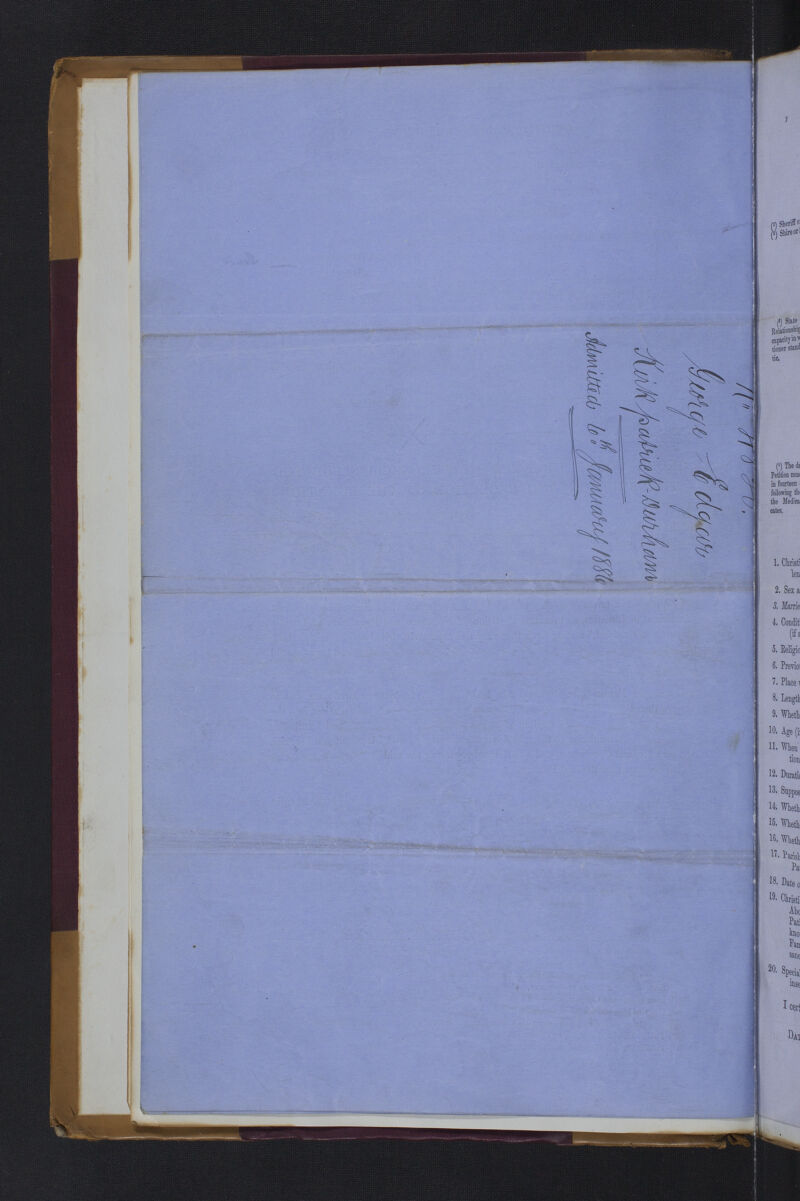 George Edgar
Kirkpatrick-Durham
Admitted 6th January 1886
(²) Sheriff
(³) Shire or
(¹) State
Relationship
capacity in
tioner stand
tie.
(²) The
Petition
in fourteen
following
the
cates.
1. Christi
2. Sex a
3. Marrie
4. Condit
(if
5. Religio
6. Previo
7. Place
8. Length
9. Wheth
10. Age (i
11. When
tion
12. Durati
13. Suppos
14. Wheth
15. Wheth
16. Wheth
17. Parish
Pa
18. Date o
19. Christi
Abo
kno
20. Special
inse
I cert